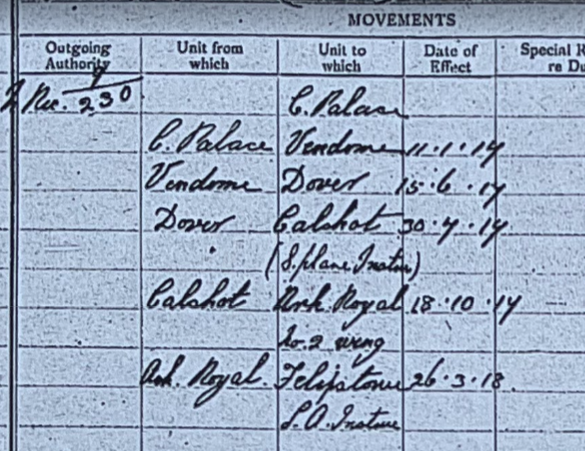 MOVEMENTS
Outgoing Authority Unit from which Unit to which Date of Effect Special
230 C. Palace
C. Palace Vendome 11.1.17
Vendome Dover 15.6.17
Dover Calshot 30.7.17
(S. plane Instn)
Calshot Ark Royal 18.10.17
No. 2 wing
Ark. Royal. Felixstowe 26.3.18